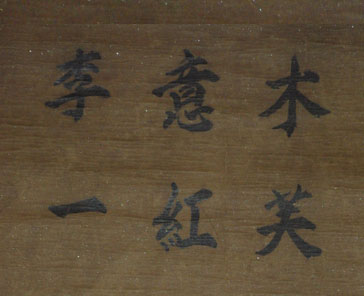 木芙
意紅
李一